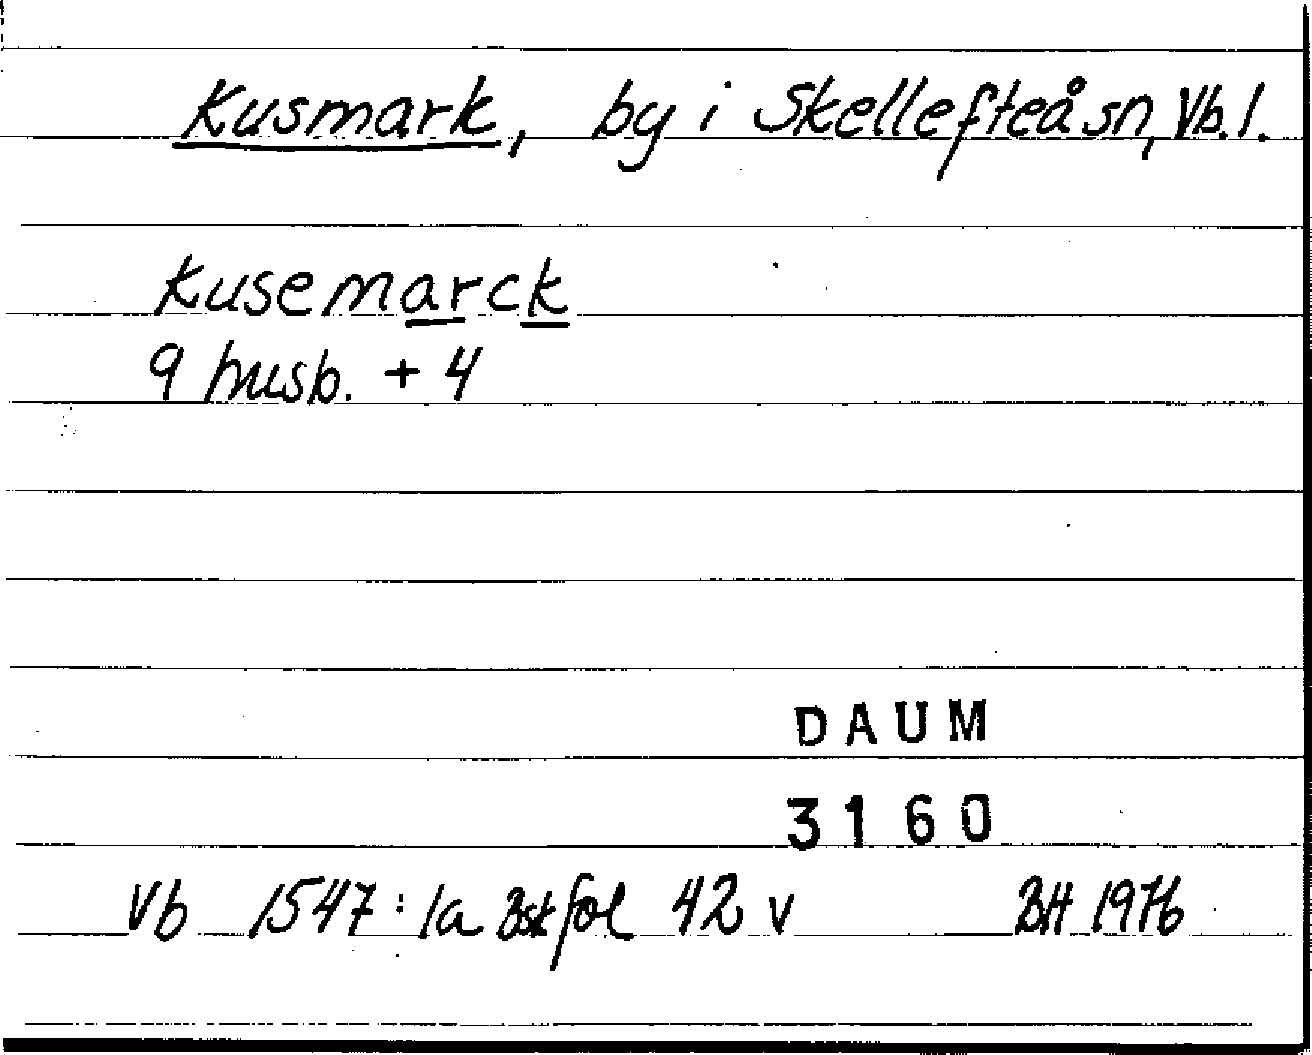 Kusmark, by i Skellefteå sn, Vb. l.
Kusemarck
9 husb. + 4
DAUM
3160
Vb 1547: 1a Bsk fol 42 v BH 1976